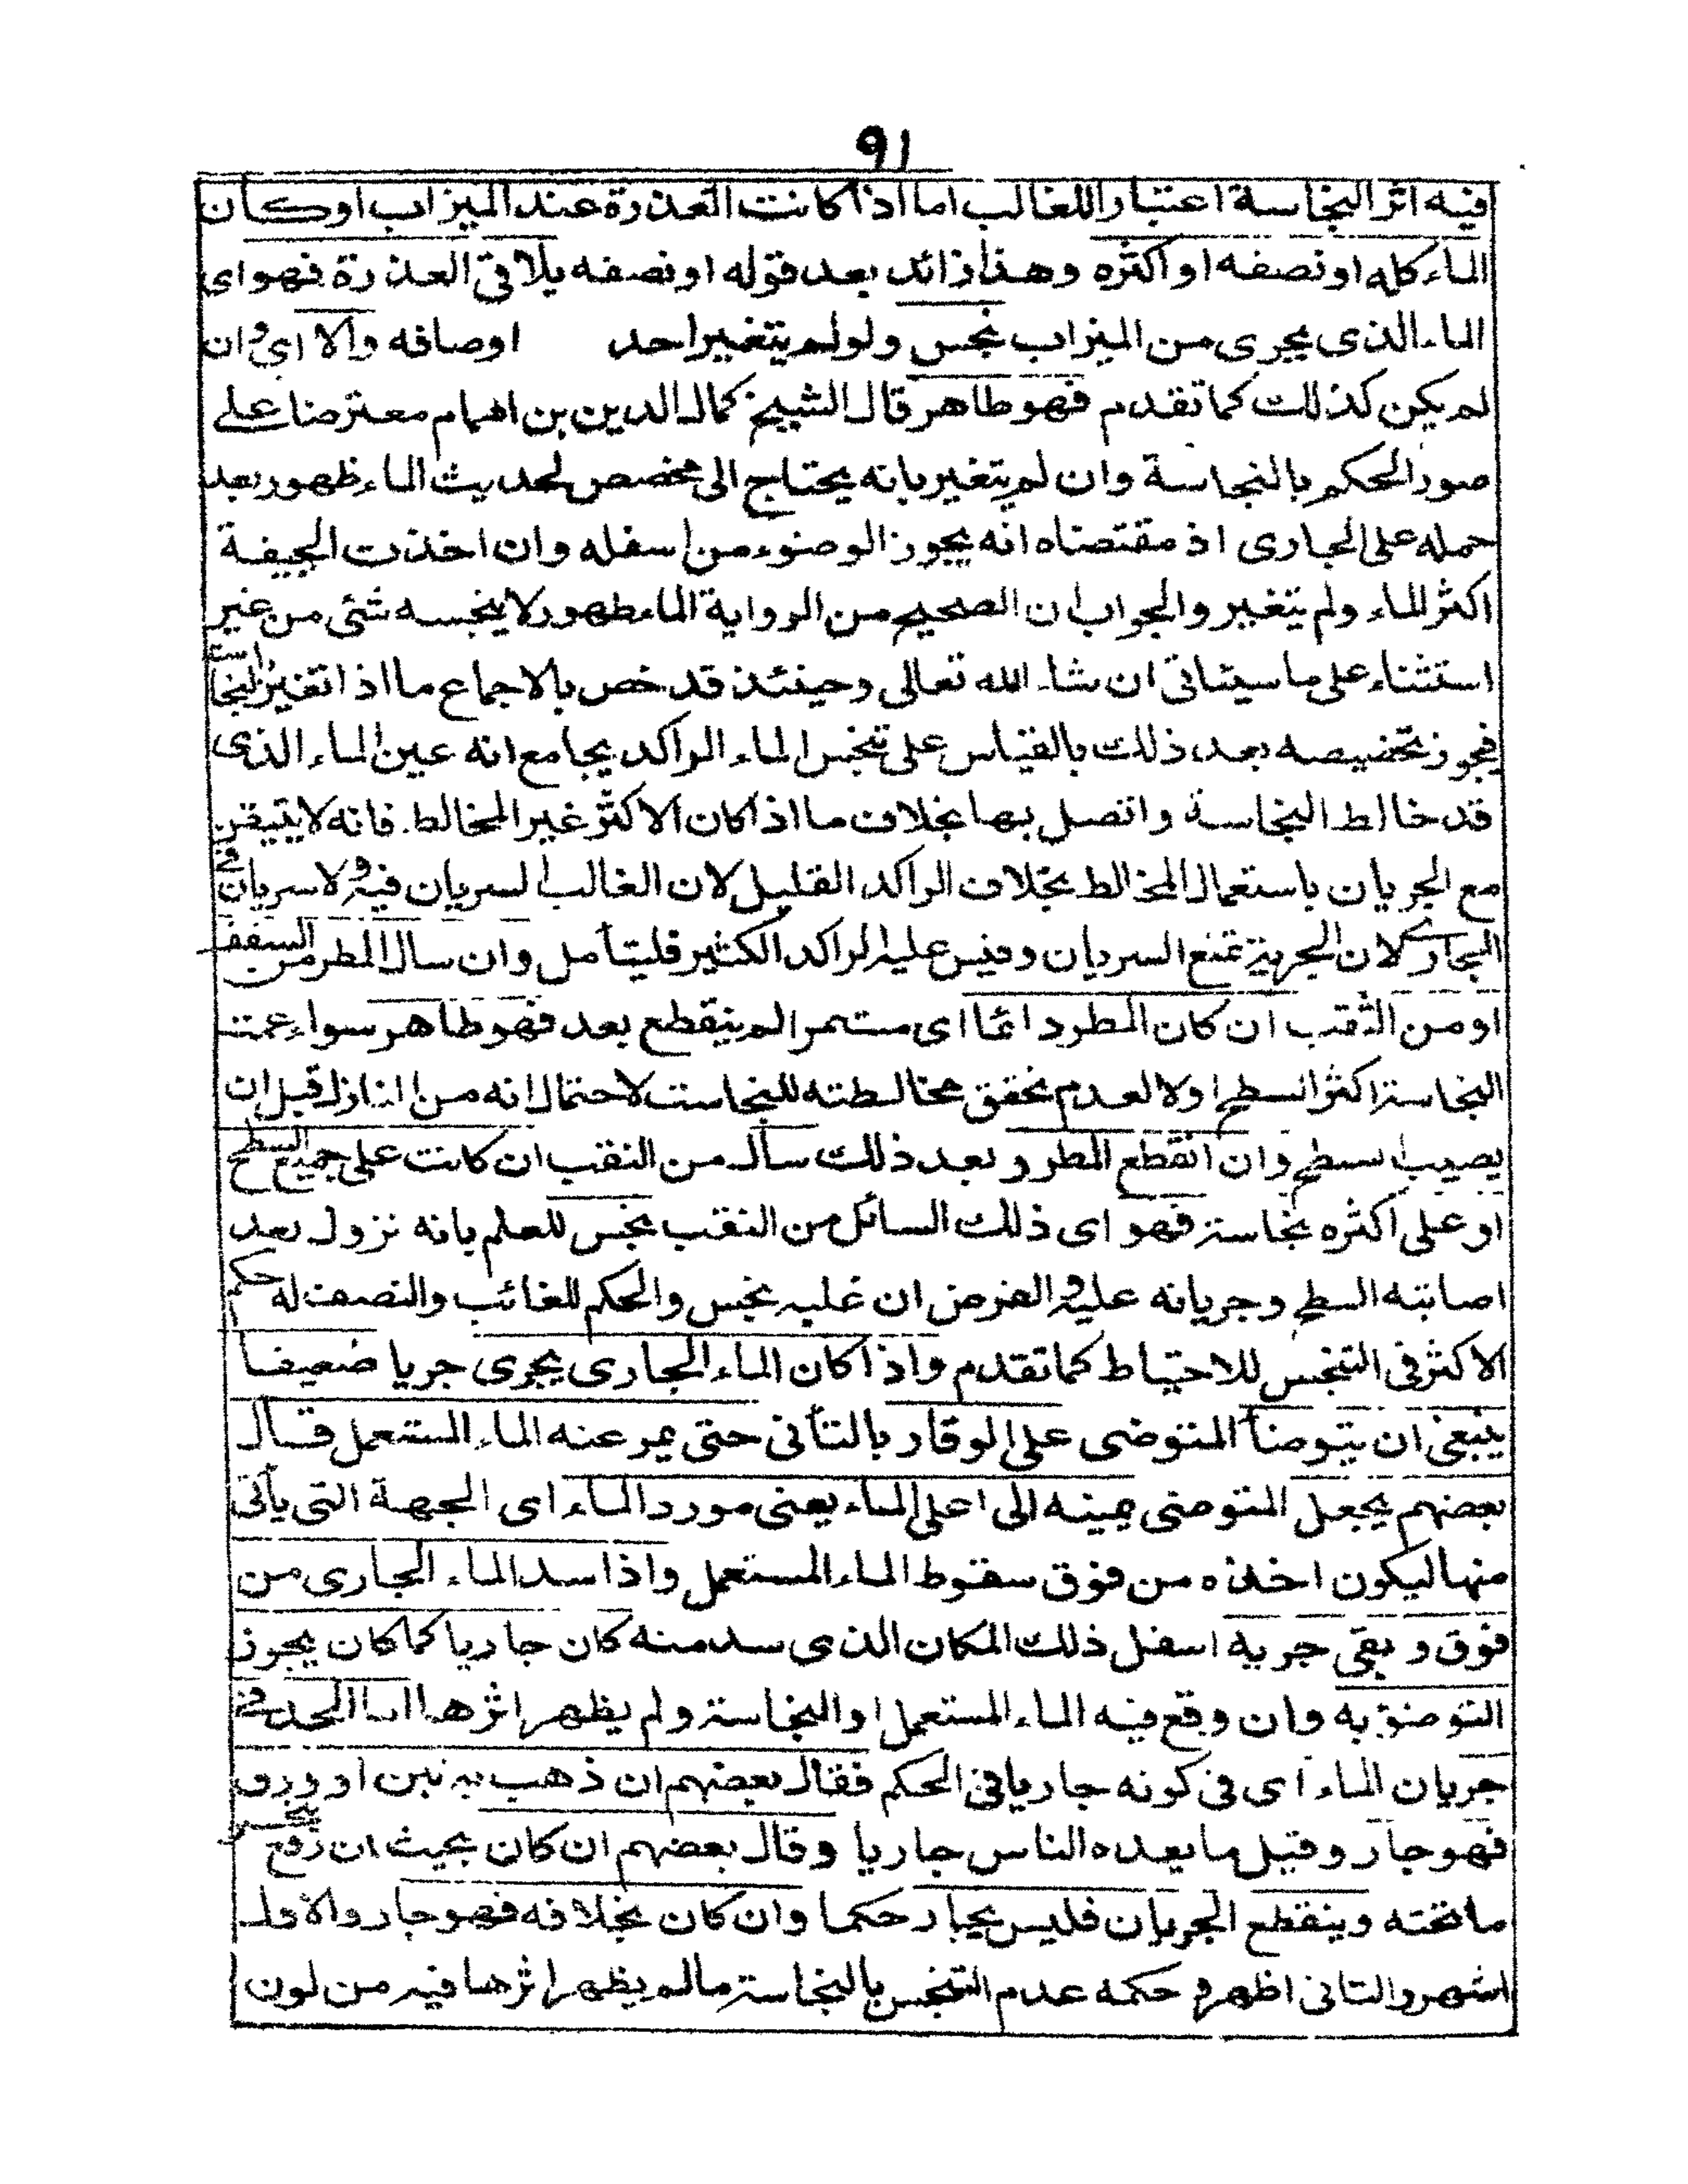 ٩١
فيه اثر النجاسة اعتبارا للغالب اما اذا كانت العذرة عند الميزاب او كان
الماء كله او نصفه او اكثره وهذا زائد بعد قوله او نصفه يلاقى العذرة فهو اى
الماء الذى يجرى من الميزاب نجس ولو لم يتغير احد اوصافه والا اى وان
لم يكن كذلك كما تقدم فهو طاهر قال الشيخ كمال الدين بن الهمام معترضا على
صور الحكم بالنجاسة وان لم يتغير بانه يحتاج الى مخصص لحديث الماء طهور بعد
حمله على الجارى اذ مقتضاه انه يجوز الوضوء من اسفله وان اخذت الجيفة
اكثر الماء ولم يتغير والجواب ان الصحيح من الرواية الماء طهور لا ينجسه شئ من غير
استثناء على ما سيتاتى ان شاء الله تعالى وحينئذ قد خص بالاجماع ما اذا تغير بالنجاسة
فيجوز تخصيصه بعد ذلك بالقياس على تنجس الماء الراكد بجامع انه عين الماء الذى
قد خالط النجاسة واتصل بها بخلاف ما اذا كان الاكثر غير المخالط فانه لا يتيقن
مع الجريان باستعمال المخالط بخلاف الراكد القليل لان الغالب السريان فيه ولا سريان فى
الجارى لان الجرية تمنع السريان وقيس عليه الراكد الكثير فليتأمل وان سال المطر من السقف
او من الثقب ان كان المطر دائما اى مستمرا لم ينقطع بعد فهو طاهر سواء عمت
النجاسة اكثر السطح او لا لعدم تحقق مخالطته للنجاست لاحتمال انه من النازل قبل ان
يصيب السطح وان انقطع المطر و بعد ذلك سال من النقب ان كانت على جميع السطح
او على اكثره نجاسة فهو اى ذلك السائل من النقب نجس للعلم بانه نزول بعد
اصابته السطح وجريانه عليه والفرض ان غلبه نجس والحكم للغائب والنصف له حكم
الاكثر فى التنجس للاحتياط كما تقدم واذا كان الماء الجارى يجرى جريا ضعيفا
ينبغى ان يتوضأ المتوضى على الوقار بالتأنى حتى يمر عنه الماء المستعمل قال
بعضهم يجعل المتوضى يمينه الى اعلى الماء يعنى مورد الماء اى الجهة التى يأتى
منها ليكون اخذه من فوق سقوط الماء المستعمل واذا سد الماء الجارى من
فوق و بقى جريه اسفل ذلك المكان الذى سد منه كان جاريا كما كان يجوز
التوضؤ به وان وقع فيه الماء المستعمل او النجاسة ولم يظهر اثرها اما الحد فى
جريان الماء اى فى كونه جاريا فى الحكم فقال بعضهم ان ذهب به تبن او ورق
فهو جار وقيل ما يعده الناس جاريا وقال بعضهم ان كان بحيث ان رفع
ما تحته وينقطع الجريان فليس بجار حكما وان كان بخلافه فهو جار والاول
اشهر والثانى اظهر و حكمه عدم التنجس بالنجاسة ما لم يظهر اثرها فيه من لون